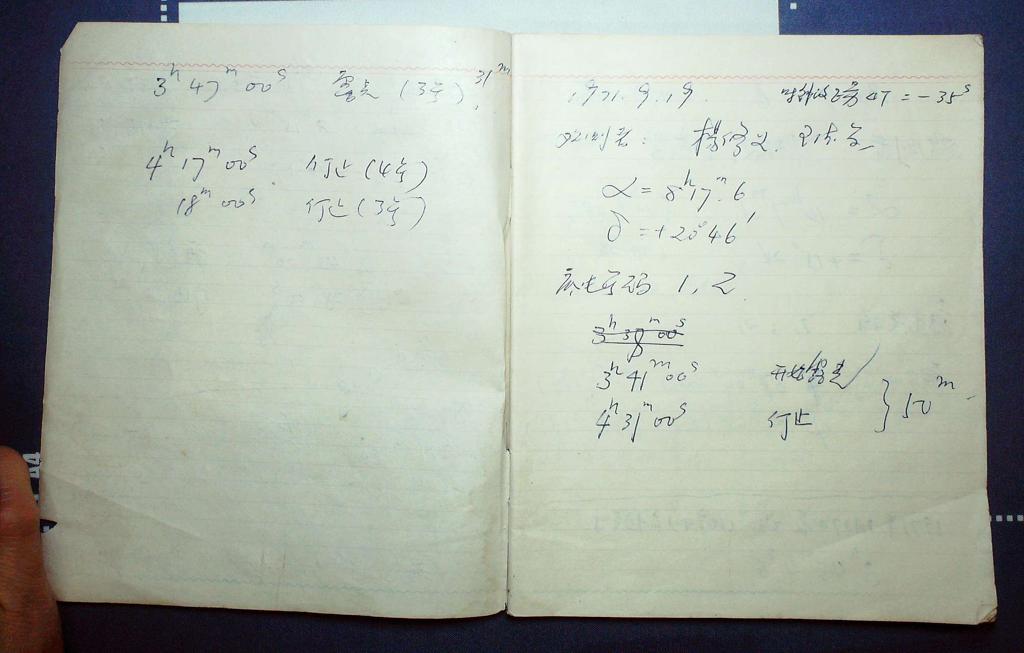 3ʰ 47ᵐ 00ˢ 露光 (3号) 31ᵐ.
4ʰ 17ᵐ 00ˢ 停止 (4号)
18ᵐ 00ˢ 停止 (3号)
1971.9.19. ΔT = -35ˢ
观测者:
α = 8ʰ17ᵐ.6
δ = +20°46′
底片号码 1, 2
3ʰ 41ᵐ 00ˢ 开始露光
4ʰ 31ᵐ 00ˢ 停止 } 50ᵐ